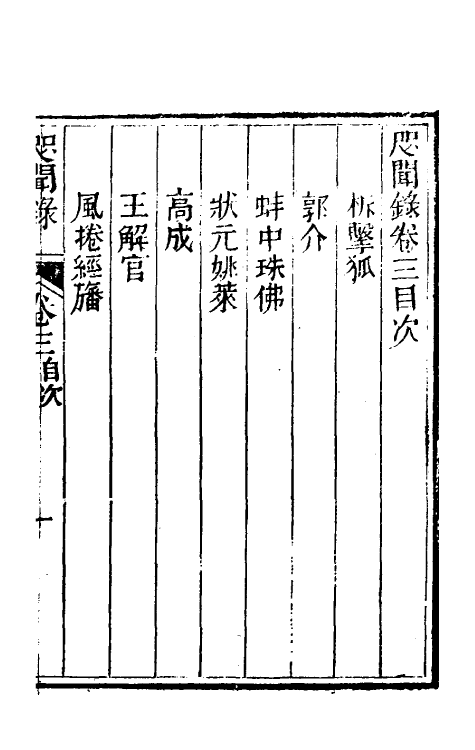 咫聞錄卷三目次
柝擊狐
郭介
蚌中珠佛
狀元姚萊
高成
王解官
風捲經旛
咫聞錄
卷三目次
一